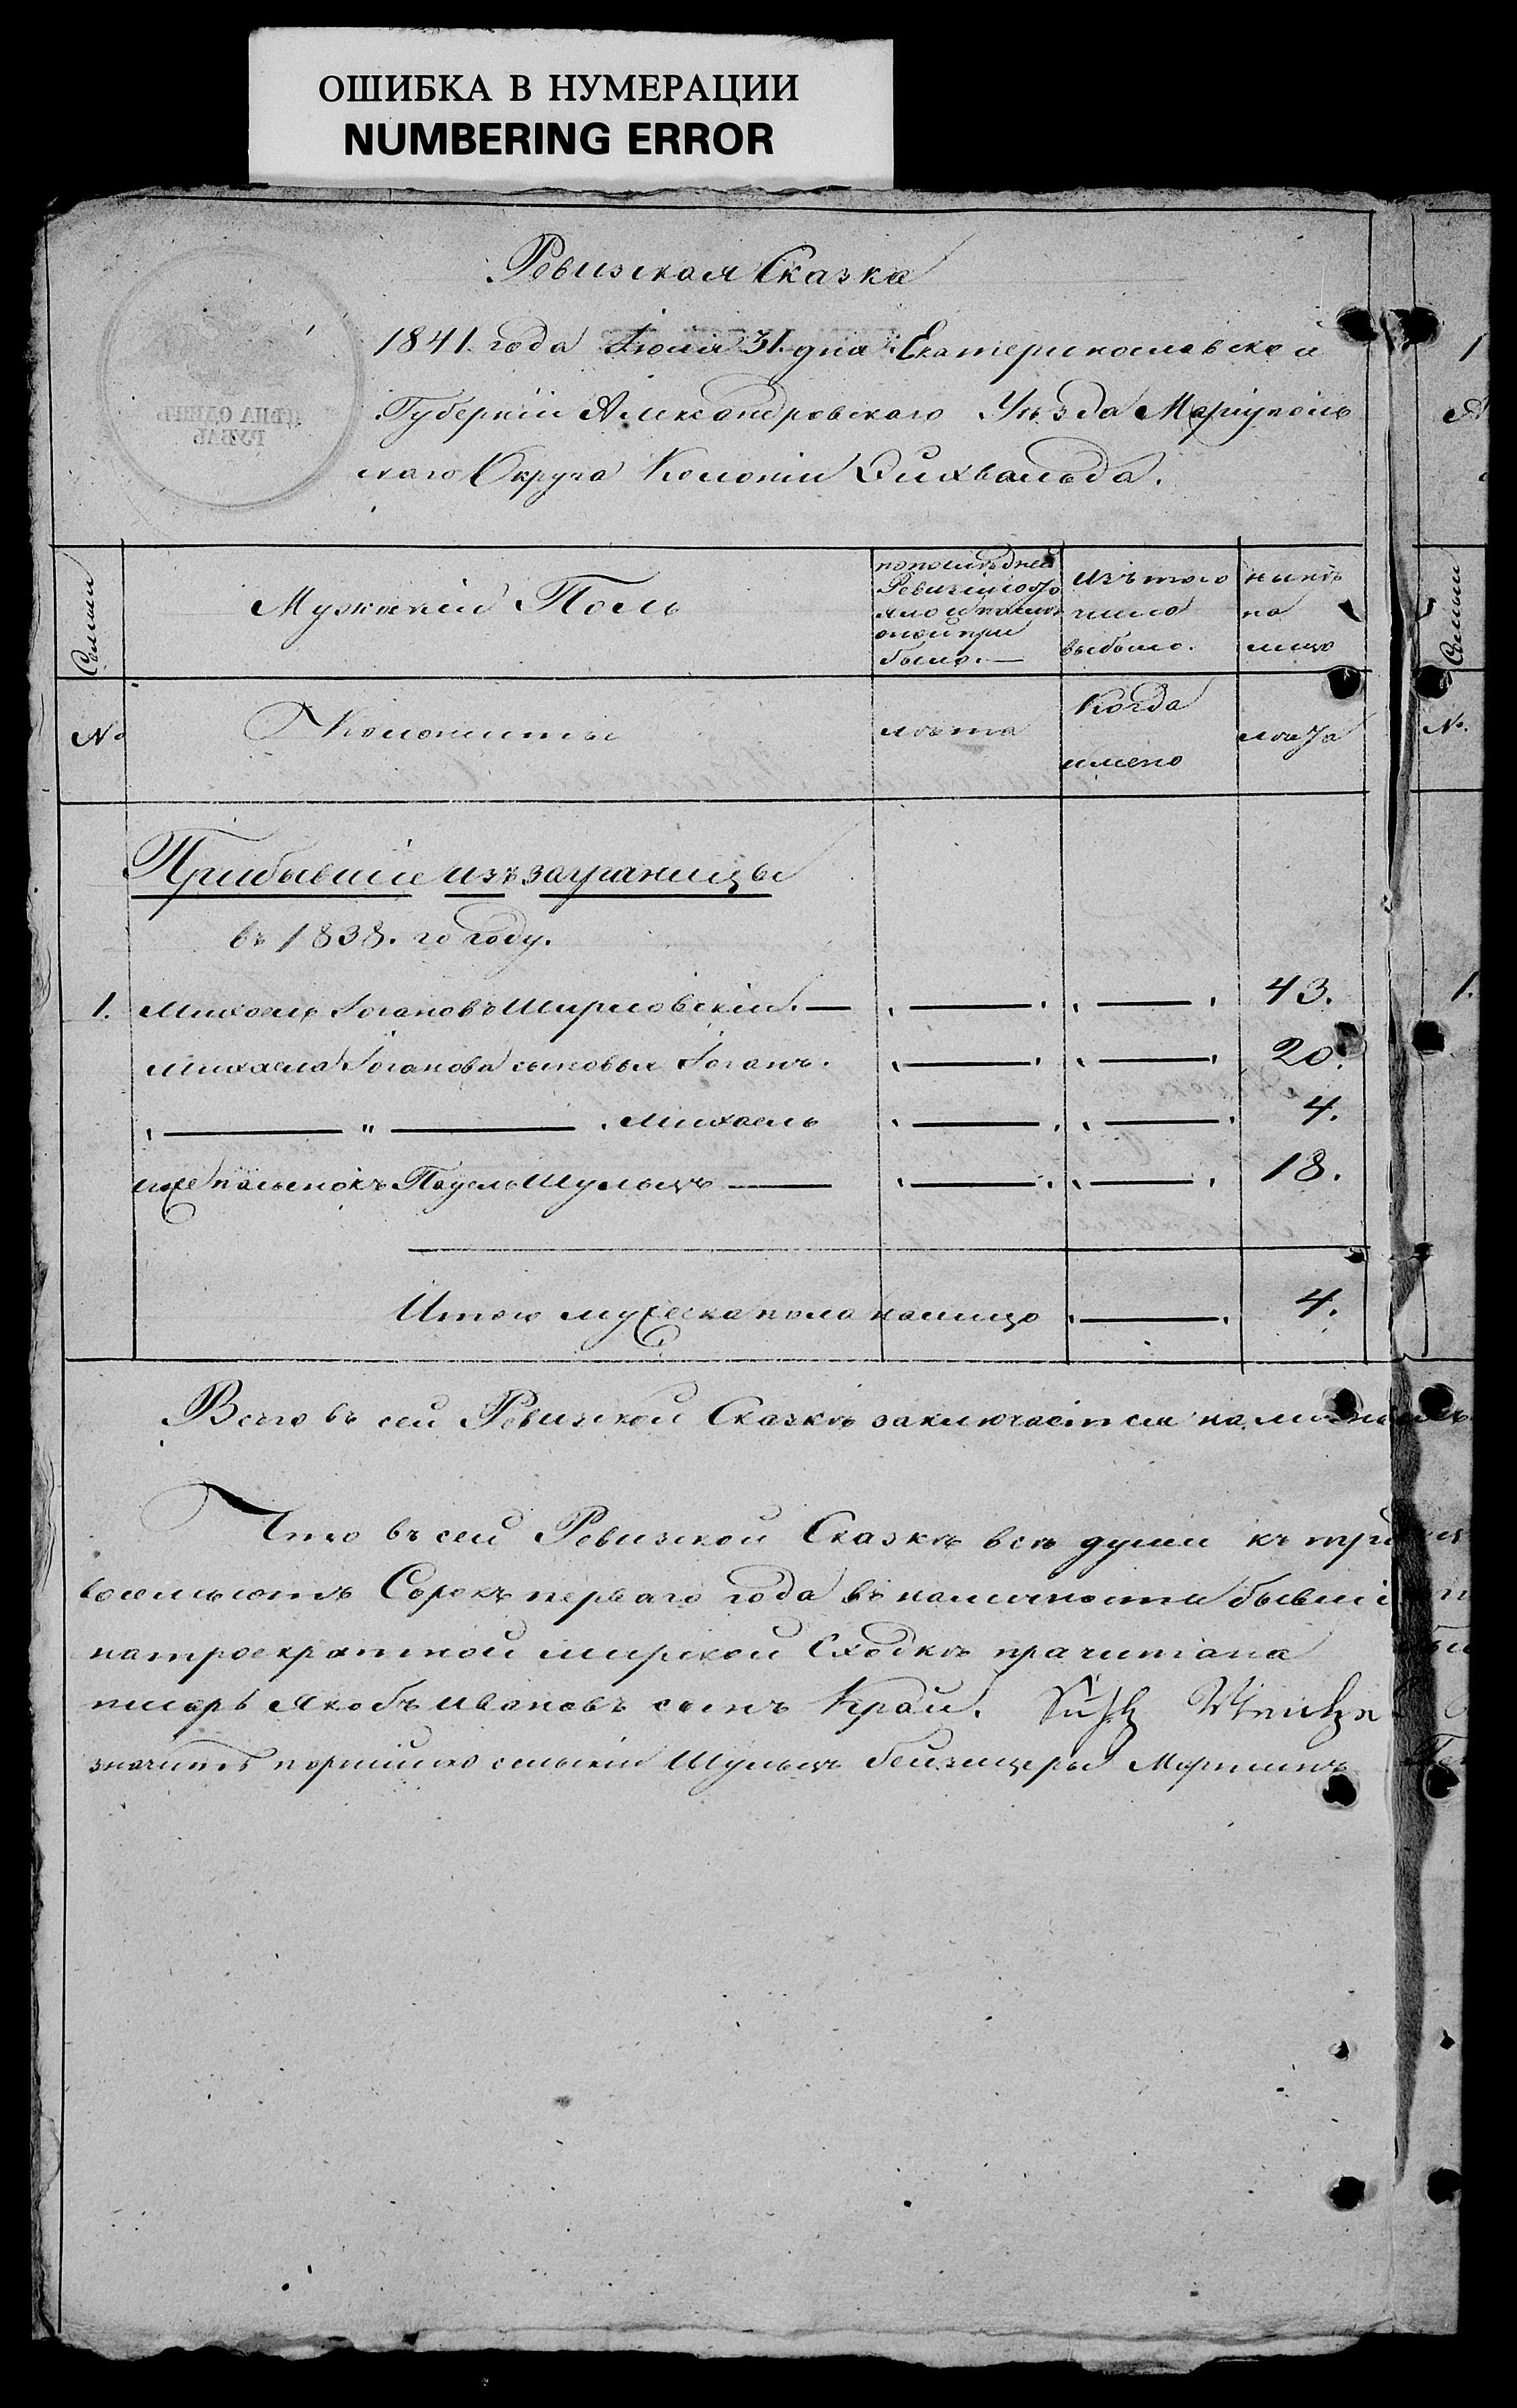 ОШИБКА В НУМЕРАЦИИ
NUMBERING ERROR
Ревизская Сказка
1841. года Іюля 31. дня Екатеринославской
Губерніи Александровского Уѣзда Маріуполь
скаго Округа Колоніи Эйхвальда.
ЦѢНА ОДИНЪ
РУБЛЬ
Семьи
Мужескій Полъ
по послѣдней
Ревизіи состо
яло и послѣ
оной при
было.—
Изъ того
числа
выбыло.
нынѣ
на
лицо
Семьи
№
Колонисты
лѣта
Когда
имено
лѣта
№.
Прибывшіе изъ заграницы
въ 1838. го году.
1. Михаель Іогановъ Ширмовскій. — 43.
Михаела Іоганова сыновья Іоганъ. 20.
„ — „ — Михаель 4.
его же пасынокъ Пауель Шульцъ — 18.
Итого мужеска пола налицо 4.
Всего въ сей Ревизской Сказкѣ заключается
Что въ сей Ревизской Сказкѣ всѣ души къ
восемьсотъ Сорокъ перваго года въ наличности бывші
на троекратной мирской Сходкѣ прочитана
писарь Якобъ Ивановъ сынъ Край.
значитъ сельскій Шульцъ бейзицеры Мартинъ